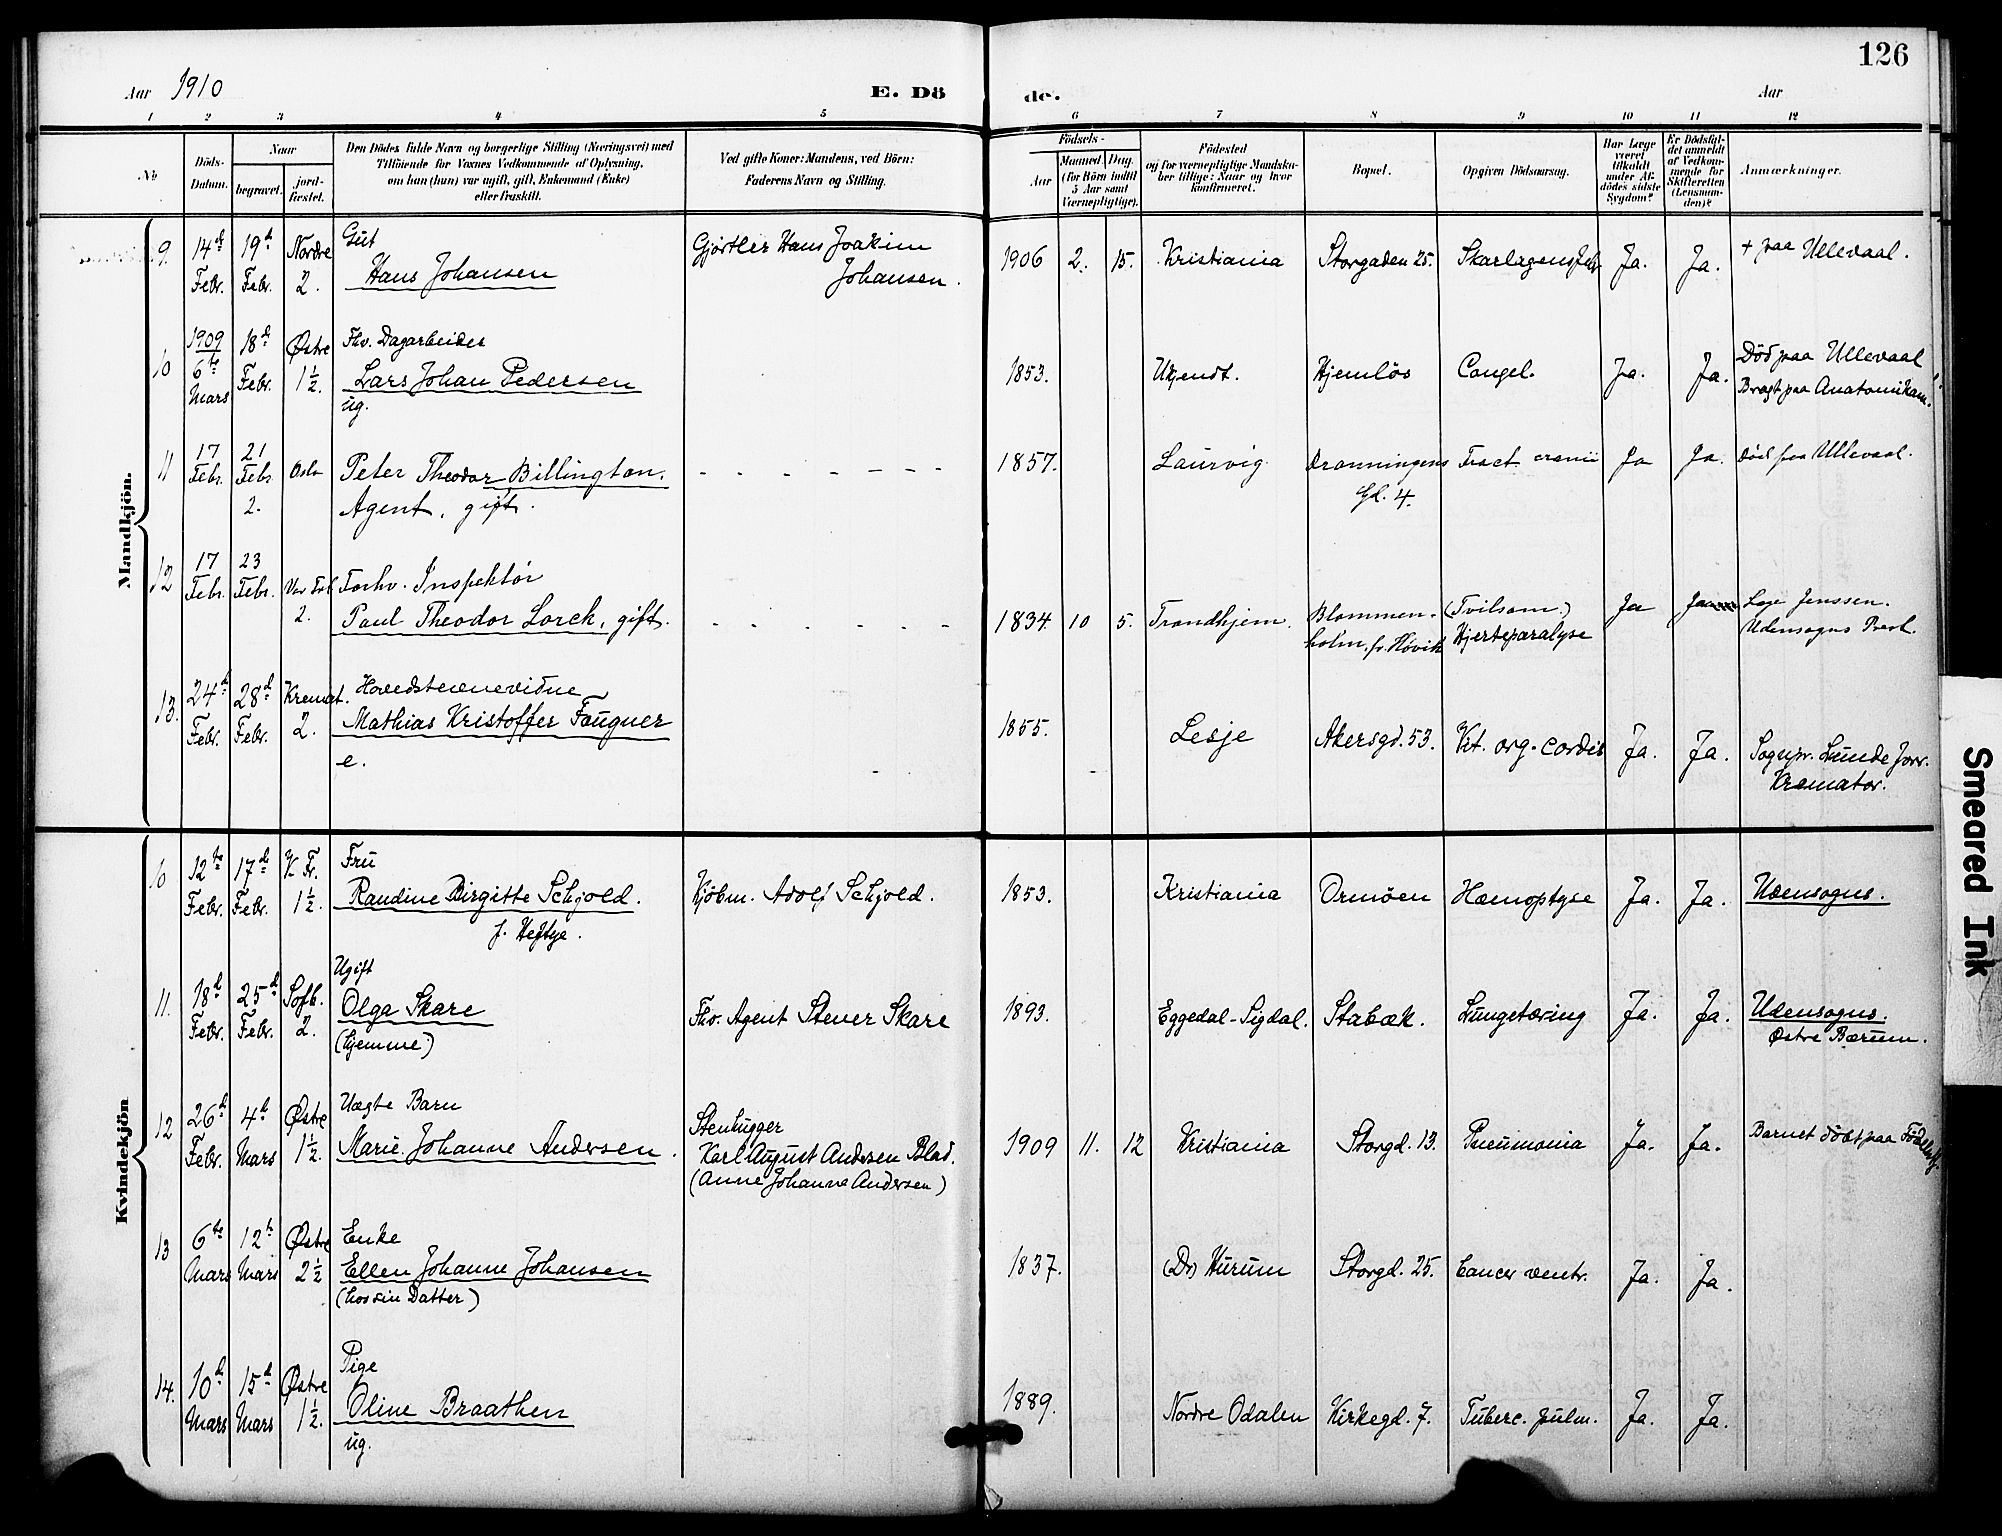 126
Aar 1910
E. Dö de.
Aar
1 2 3 4 5 6 7 8 9 10 11 12
No
Döds-Datum.
Naar
begravet.
jordfæstet.
Den Dödes fulde Navn og borgerlige Stilling (Næringsvei) med
Tilföiende for Voxnes Vedkommende af Oplysning,
om han (hun) var ugift, gift, Enkemand (Enke)
eller fraskilt.
Ved gifte Koner: Mandens, ved Börn:
Faderens Navn og Stilling.
Födsels-
Aar
Maaned. Dag.
(for Börn indtil
5 Aar samt
Værnepligtige).
Födested
og for værnepligtige Mandska-
ber tillige: Naar og hvor
konfirmeret.
Bopæl.
Opgiven Dödsaarsag.
Har Læge
været
tilkaldt
under Af-
dödes sidste
Sygdom?
Er Dödsfal-
det anmeldt
af Vedkom-
mende for
Skifteretten
(Lensman-
den)?
Anmærkninger.
Mandkjön.
9. 14d Febr. 19d Febr. Nordre 2. Gut Hans Johansen Gjørtler Hans Joakim Johansen. 1906 2. 15. Kristiania Storgaden 25. Ja. Ja. + paa Ullevaal.
10 1909 6te Mars 18d Febr. Østre 1½. Fhv. Dagarbeider Lars Johan Pedersen ug. 1853. Ukjendt. Hjemløs Congel. Ja. Ja. Død paa Ullevaal Bragt paa
11 17 Febr. 21 Febr. 2. Oslo Peter Theodor Billington. Agent, gift. 1857. Laurvig. Dronningens Gd. 4. Fract. cranii Ja Ja. Død paa Ullevaal.
12 17 Febr. 23 Febr. Vor Frel 2. Forhv. Inspektør Paul Theodor Lorck, gift. 1834. 10 5. Trondhjem. Blommenholm, pr. Høvik (Tvilsom.) Hjerteparalyse Ja Ja Jenssen. Udensogns Prest.
13. 24d Febr. 28d Febr. Kremat. 2. Hovedstevnevidne Mathias Kristoffer Faugner e. 1855. Lesje Akersgd. 53. Vit. org. cordis Ja. Ja. Sognpr. Lunde Kremator.
Kvindekjön
10 12te Febr. 17d Febr. V. Fr. 1½. Fru Randine Birgitte Schjold. f. Heftye. Kjøbm. Adolf Schjold. 1853. Kristiania Ormøen Hæmoptyse Ja. Ja. Udensogns.
11. 18d Febr. 25d Febr. Sofb. 2. Ugift Olga Skare (hjemme) Fhv. Agent Stener Skare 1893. Eggedal-Sigdal. Stabæk. Lungetæring Ja. Ja. Udensogns. Østre Bærum.
12 26d Febr. 4d Mars Østre 1½. Uægte Barn Marie Johanne Andersen. Stenhugger Karl August Andersen Blad. (Anne Johanne Andersen) 1909 11. 12 Kristiania Storgd. 13. Pneumonia Ja. Ja. Barnet døbt paa
13 6te Mars 12te Mars Østre 2½ Enke Ellen Johanne Johansen Datter) 1837. (Dr) Hurum Storgd. 25. Cancer ventr. Ja. Ja.
14. 10d Mars 15d Mars Østre 1½. Pige Oline Braathen ug. 1889. Nordre Odalen Kirkegd. 7. Tuberc. pulm. Ja. Ja.
Smeared Ink